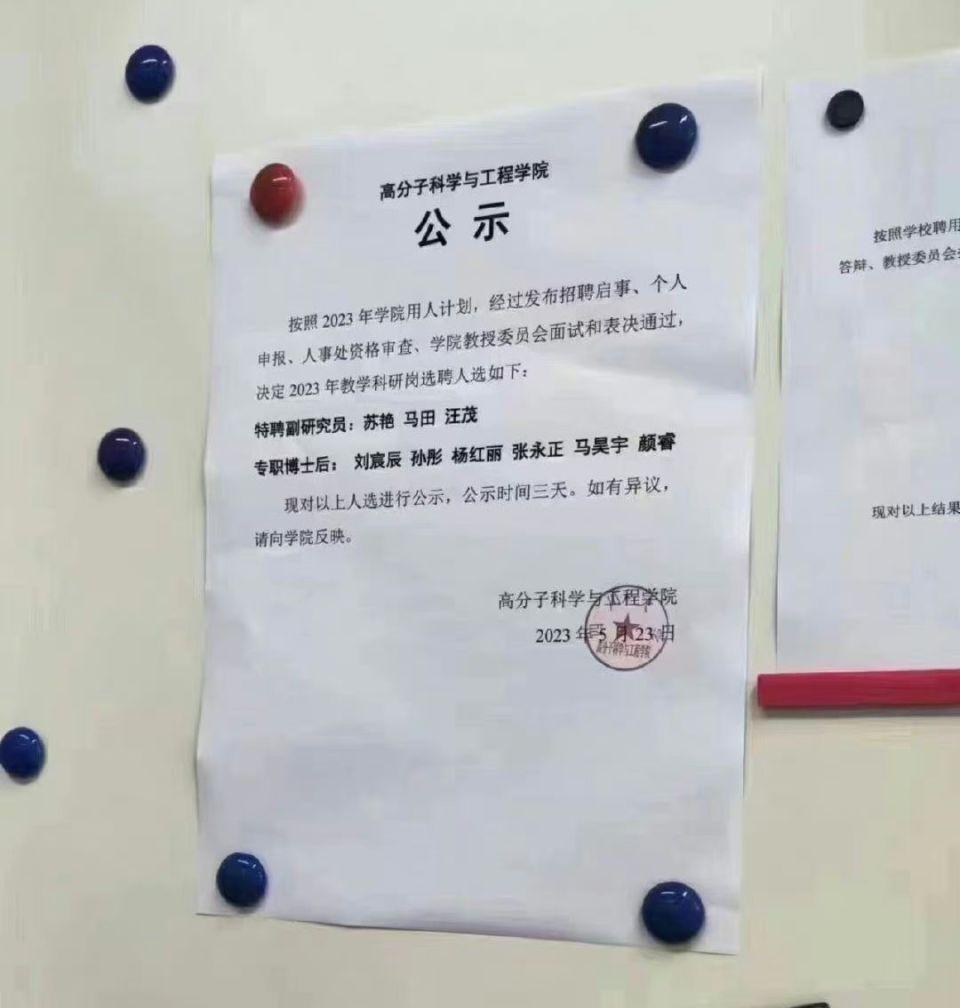 高分子科学与工程学院
公 示
按照 2023 年学院用人计划，经过发布招聘启事、个人
申报、人事处资格审查、学院教授委员会面试和表决通过，
决定 2023 年教学科研岗选聘人选如下：
特聘副研究员：苏艳 马田 汪茂
专职博士后： 刘宸辰 孙彤 杨红丽 张永正 马昊宇 颜睿
现对以上人选进行公示，公示时间三天。如有异议，
请向学院反映。
高分子科学与工程学院
2023 年 5 月 23 日
高分子科学与工程学院
按照学校聘用
答辩、教授委员会
现对以上结果